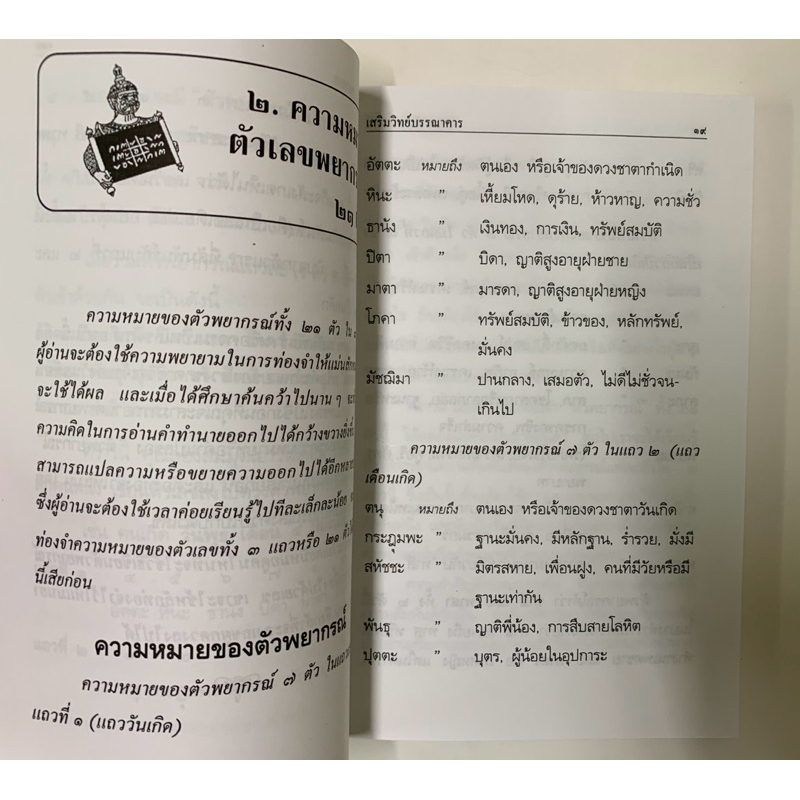 ๒. ความหม
ตัวเลขพยากร
๒๑
ความหมายของตัวพยากรณ์ทั้ง ๒๑ ตัว ใน
ผู้อ่านจะต้องใช้ความพยายามในการท่องจำให้แม่น
จะใช้ได้ผล และเมื่อได้ศึกษาค้นคว้าไปนาน ๆ
ความคิดในการอ่านคำทำนายออกไปได้กว้างขวางยิ่งขึ้
สามารถแปลความหรือขยายความออกไปได้อีกหลาย
ซึ่งผู้อ่านจะต้องใช้เวลาค่อยเรียนรู้ไปทีละเล็กละน้อย
ท่องจำความหมายของตัวเลขทั้ง ๓ แถวหรือ ๒๑ ตัว
นี้เสียก่อน
ความหมายของตัวพยากรณ์
ความหมายของตัวพยากรณ์ ๗ ตัว ในแถว
แถวที่ ๑ (แถววันเกิด)
เสริมวิทย์บรรณาคาร ๑๙
อัตตะ หมายถึง ตนเอง หรือเจ้าของดวงชาตากำเนิด
หินะ ” เหี้ยมโหด, ดุร้าย, ห้าวหาญ, ความชั่ว
ธานัง ” เงินทอง, การเงิน, ทรัพย์สมบัติ
ปิตา ” บิดา, ญาติสูงอายุฝ่ายชาย
มาตา ” มารดา, ญาติสูงอายุฝ่ายหญิง
โภคา ” ทรัพย์สมบัติ, ข้าวของ, หลักทรัพย์,
มั่นคง
มัชฌิมา ” ปานกลาง, เสมอตัว, ไม่ดีไม่ชั่วจน-
เกินไป
ความหมายของตัวพยากรณ์ ๗ ตัว ในแถว ๒ (แถว
เดือนเกิด)
ตนุ หมายถึง ตนเอง หรือเจ้าของดวงชาตาวันเกิด
กระฎุมพะ ” ฐานะมั่นคง, มีหลักฐาน, ร่ำรวย, มั่งมี
สหัชชะ ” มิตรสหาย, เพื่อนฝูง, คนที่มีวัยหรือมี
ฐานะเท่ากัน
พันธุ ” ญาติพี่น้อง, การสืบสายโลหิต
ปุตตะ ” บุตร, ผู้น้อยในอุปการะ